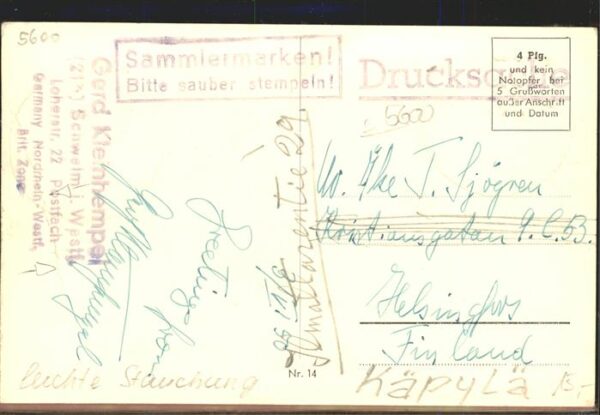 5600
Sammlermarken!
Bitte sauber stempeln!
Drucksache
4 Pfg.
und kein
Notopfer bei
5 Grußworten
außer Anschrift
und Datum
5600
Gerd Kleinhempel
(21a) Schwelm i. Westf.
Loherstr. 22 Postfach
Germany Nordrhein-Westf.
Brit. Zone
Greetings from
T. Sjögren
Kristiansgatan 9. C. 53.
Helsingfors
Finland
Käpylä
leichte Stauchung
Nr. 14